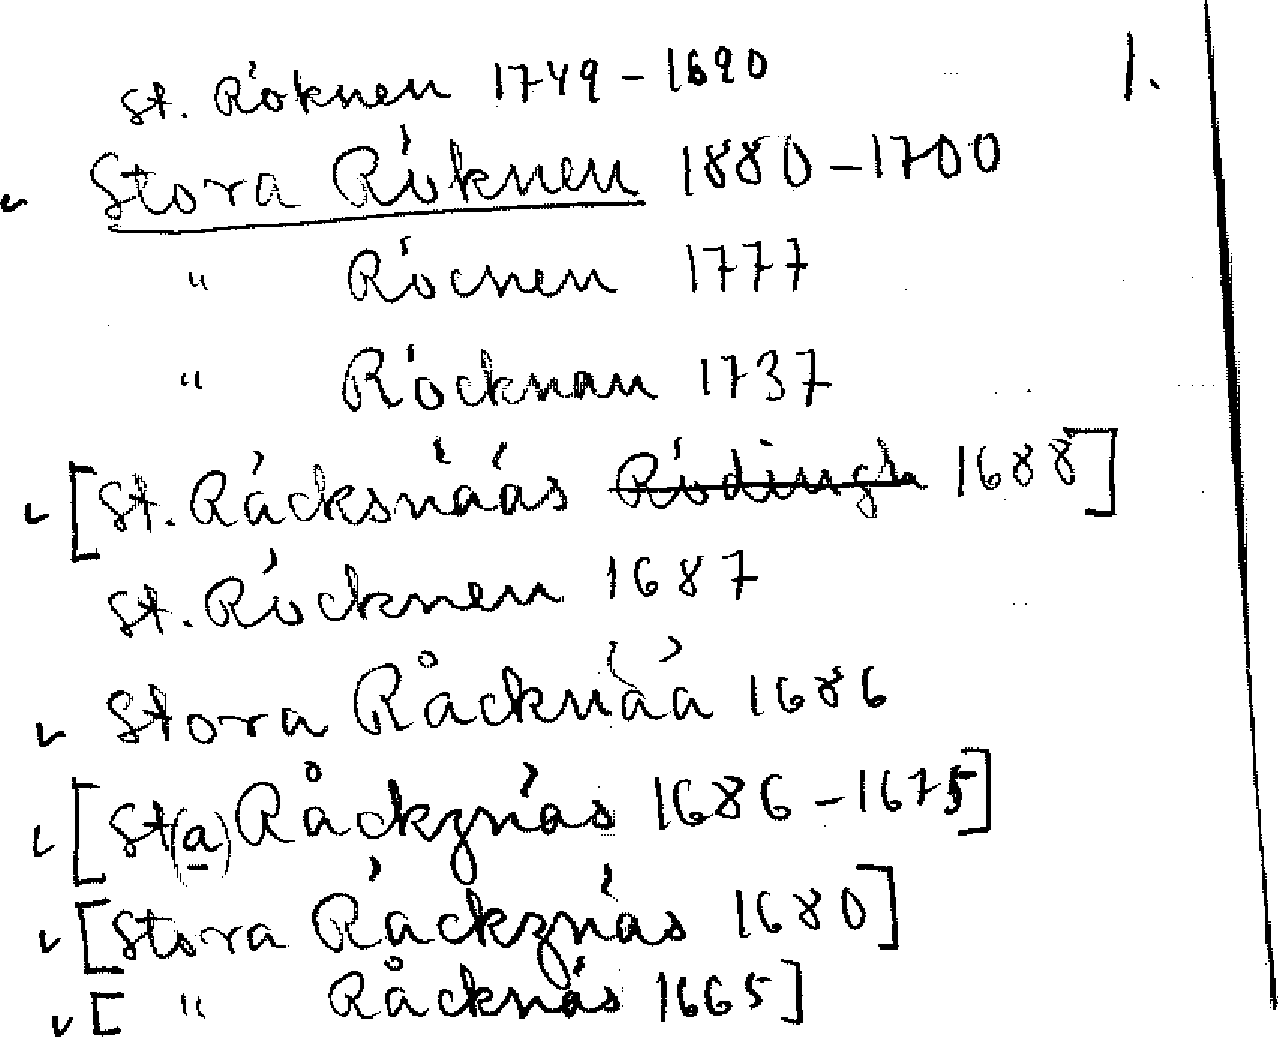 St. Röknen 1749-1690 1.
Stora Röknen 1880-1700
" Röcnen 1777
" Röcknan 1737
[St. Räcksnääs Rödingh 1688]
St. Röcknen 1687
Stora Råcknää 1686
[St(a) Råckznäs 1686-1675]
[Stora Räckznäs 1680]
[ " Råcknäs 1665]